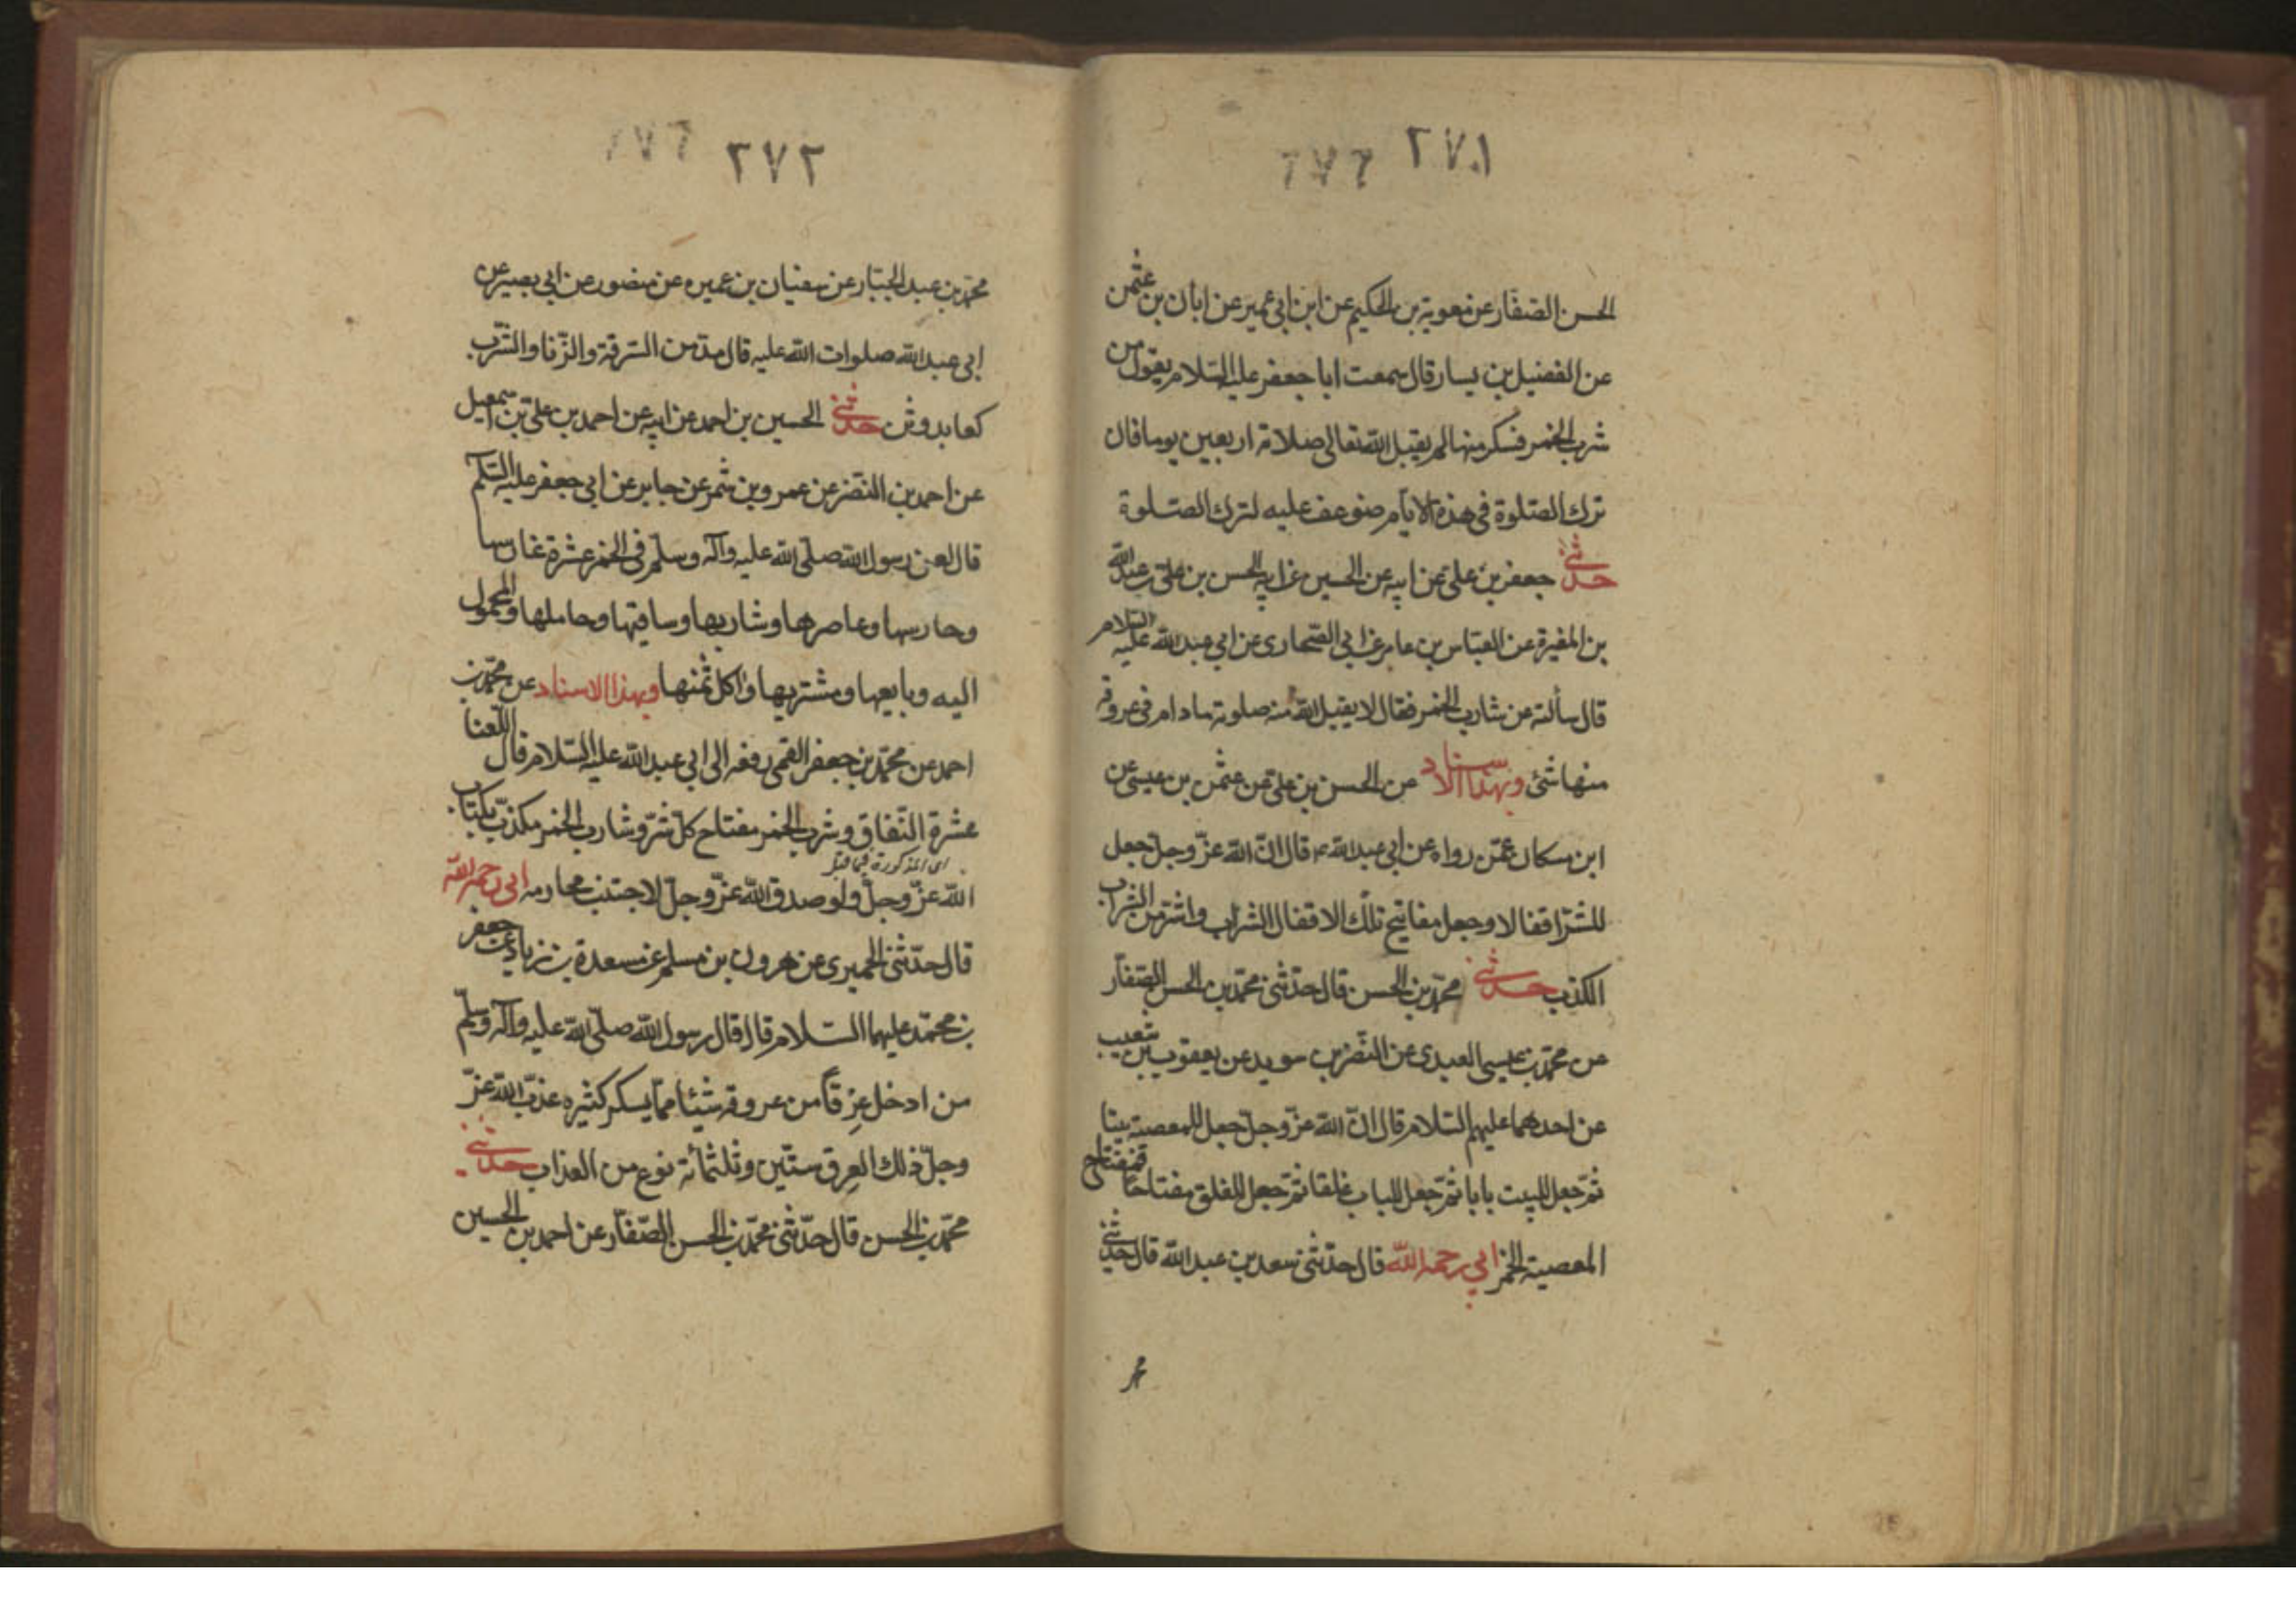 ٢٧١
٢٧٢
الحسن الصفار عن معوية بن الحكيم عن ابن ابى عمير عن ابان بن عثمن
عن الفضيل بن يسار قال سمعت ابا جعفر عليه السلام يقول من
شرب الخمر فسكر منها لم يقبل الله تعالى صلاته اربعين يوما فان
ترك الصلوة فى هذه الايام ضوعف عليه لترك الصلوة
حدثنى جعفر بن على عن ابيه عن الحسين عن ابيه الحسن بن على بن عبد الله
بن المغيرة عن العباس بن عامر عن ابى الصحارى عن ابى عبد الله عليه السلام
قال سألته عن شارب الخمر فقال لا يقبل الله منه صلوته ما دام فى عروقه
منها شئ وبهذا الاسناد عن الحسن بن على عن عثمن بن عيسى عن
ابن سكان عمّن رواه عن ابى عبد الله ع قال انّ الله عزّ وجلّ جعل
للشرّ اقفالا وجعل مفاتيح تلك الاقفال الشراب واشرّ من الشراب
الكذب حدثنى محمّد بن الحسن قال حدّثنى محمّد بن الحسن الصفّار
عن محمّد بن عيسى العبيدى عن النضر بن سويد عن يعقوب بن شعيب
عن احدهما عليهم السلام قال انّ الله عزّ وجلّ جعل للمعصية بيتا
ثمّ جعل للبيت بابا ثمّ جعل للباب غلقا ثمّ جعل للغلق مفتاحا فمفتاح
المعصية الخمر ابى رحمه الله قال حدّثنى سعد بن عبد الله قال حدثنى
محمد
محمّد بن عبد الجبّار عن سفيان بن عميره عن منصور عن ابى بصير عن
ابى عبد الله صلوات الله عليه قال مدمن السرقة والزّنا والشرب
كعابد وثن حدثنى الحسين بن احمد عن ابيه عن احمد بن على بن اسمعيل
عن احمد بن النضر عن عمرو بن شمر عن جابر عن ابى جعفر عليه السلم
قال لعن رسول الله صلّى الله عليه وآله وسلّم فى الخمر عشرة غارسها
وحارسها وعاصرها وشاربها وساقيها وحاملها والمحمول
اليه وبايعها ومشتريها واكل ثمنها وبهذا الاسناد عن محمّد بن
احمد عن محمّد بن جعفر القمى رفعه الى ابى عبد الله عليه السلام قال اللعنا
عشرة النّفاق وشرب الخمر مفتاح كلّ شرّ وشارب الخمر مكذّب بكتاب
اى المذكورة فيما قبل
الله عزّ وجلّ ولو صدق الله عزّ وجلّ لاجتنب محارمه ابى رحمه الله
قال حدّثنى الحميرى عن هرون بن مسلم عن مسعدة بن زياد عن جعفر
بن محمّد عليهما السلام قال قال رسول الله صلّى الله عليه وآله وسلّم
من ادخل عِرقاً من عروقه شيئا ممّا يسكر كثيره عذّب الله عزّ
وجلّ ذلك العِرق ستّين وثلثمائة نوع من العذاب حدثنى
محمّد بن الحسن قال حدّثنى محمّد بن الحسن الصّفّار عن احمد بن الحسين